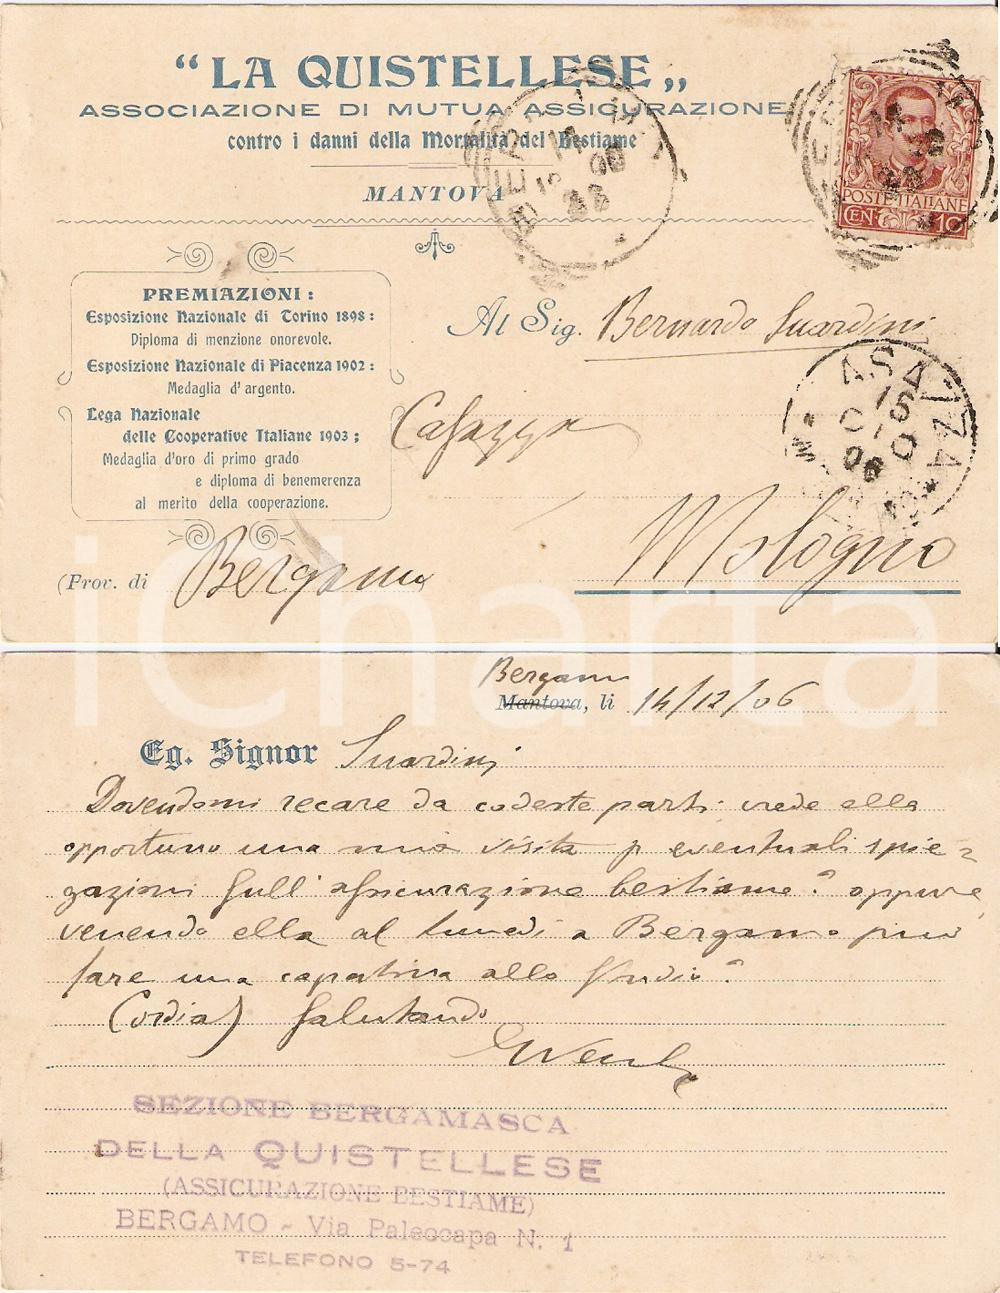 “ LA QUISTELLESE „
ASSOCIAZIONE DI MUTUA ASSICURAZIONE
contro i danni della Mortalità del Bestiame
MANTOVA
POSTE ITALIANE
CEN. 10
PREMIAZIONI :
Esposizione Nazionale di Torino 1898 :
Diploma di menzione onorevole.
Esposizione Nazionale di Piacenza 1902 :
Medaglia d' argento.
Lega Nazionale
delle Cooperative Italiane 1903 ;
Medaglia d'oro di primo grado
e diploma di benemerenza
al merito della cooperazione.
Al Sig. Bernardo Suardini
Casazza
Mologno
(Prov. di Bergamo
iCharta
Bergamo
Mantova, li 14/12/06
Eg. Signor Suardini
Dovendomi recare da codeste parti crede ella
opportuno una mia visita p eventuali spie-
gazioni sull' assicurazione bestiame? oppure
venendo ella al lunedì a Bergamo può
fare una capatina allo studio?
Cordial) salutando
SEZIONE BERGAMASCA
DELLA QUISTELLESE
(ASSICURAZIONE BESTIAME)
BERGAMO - Via Paleocapa N. 1
TELEFONO 5-74